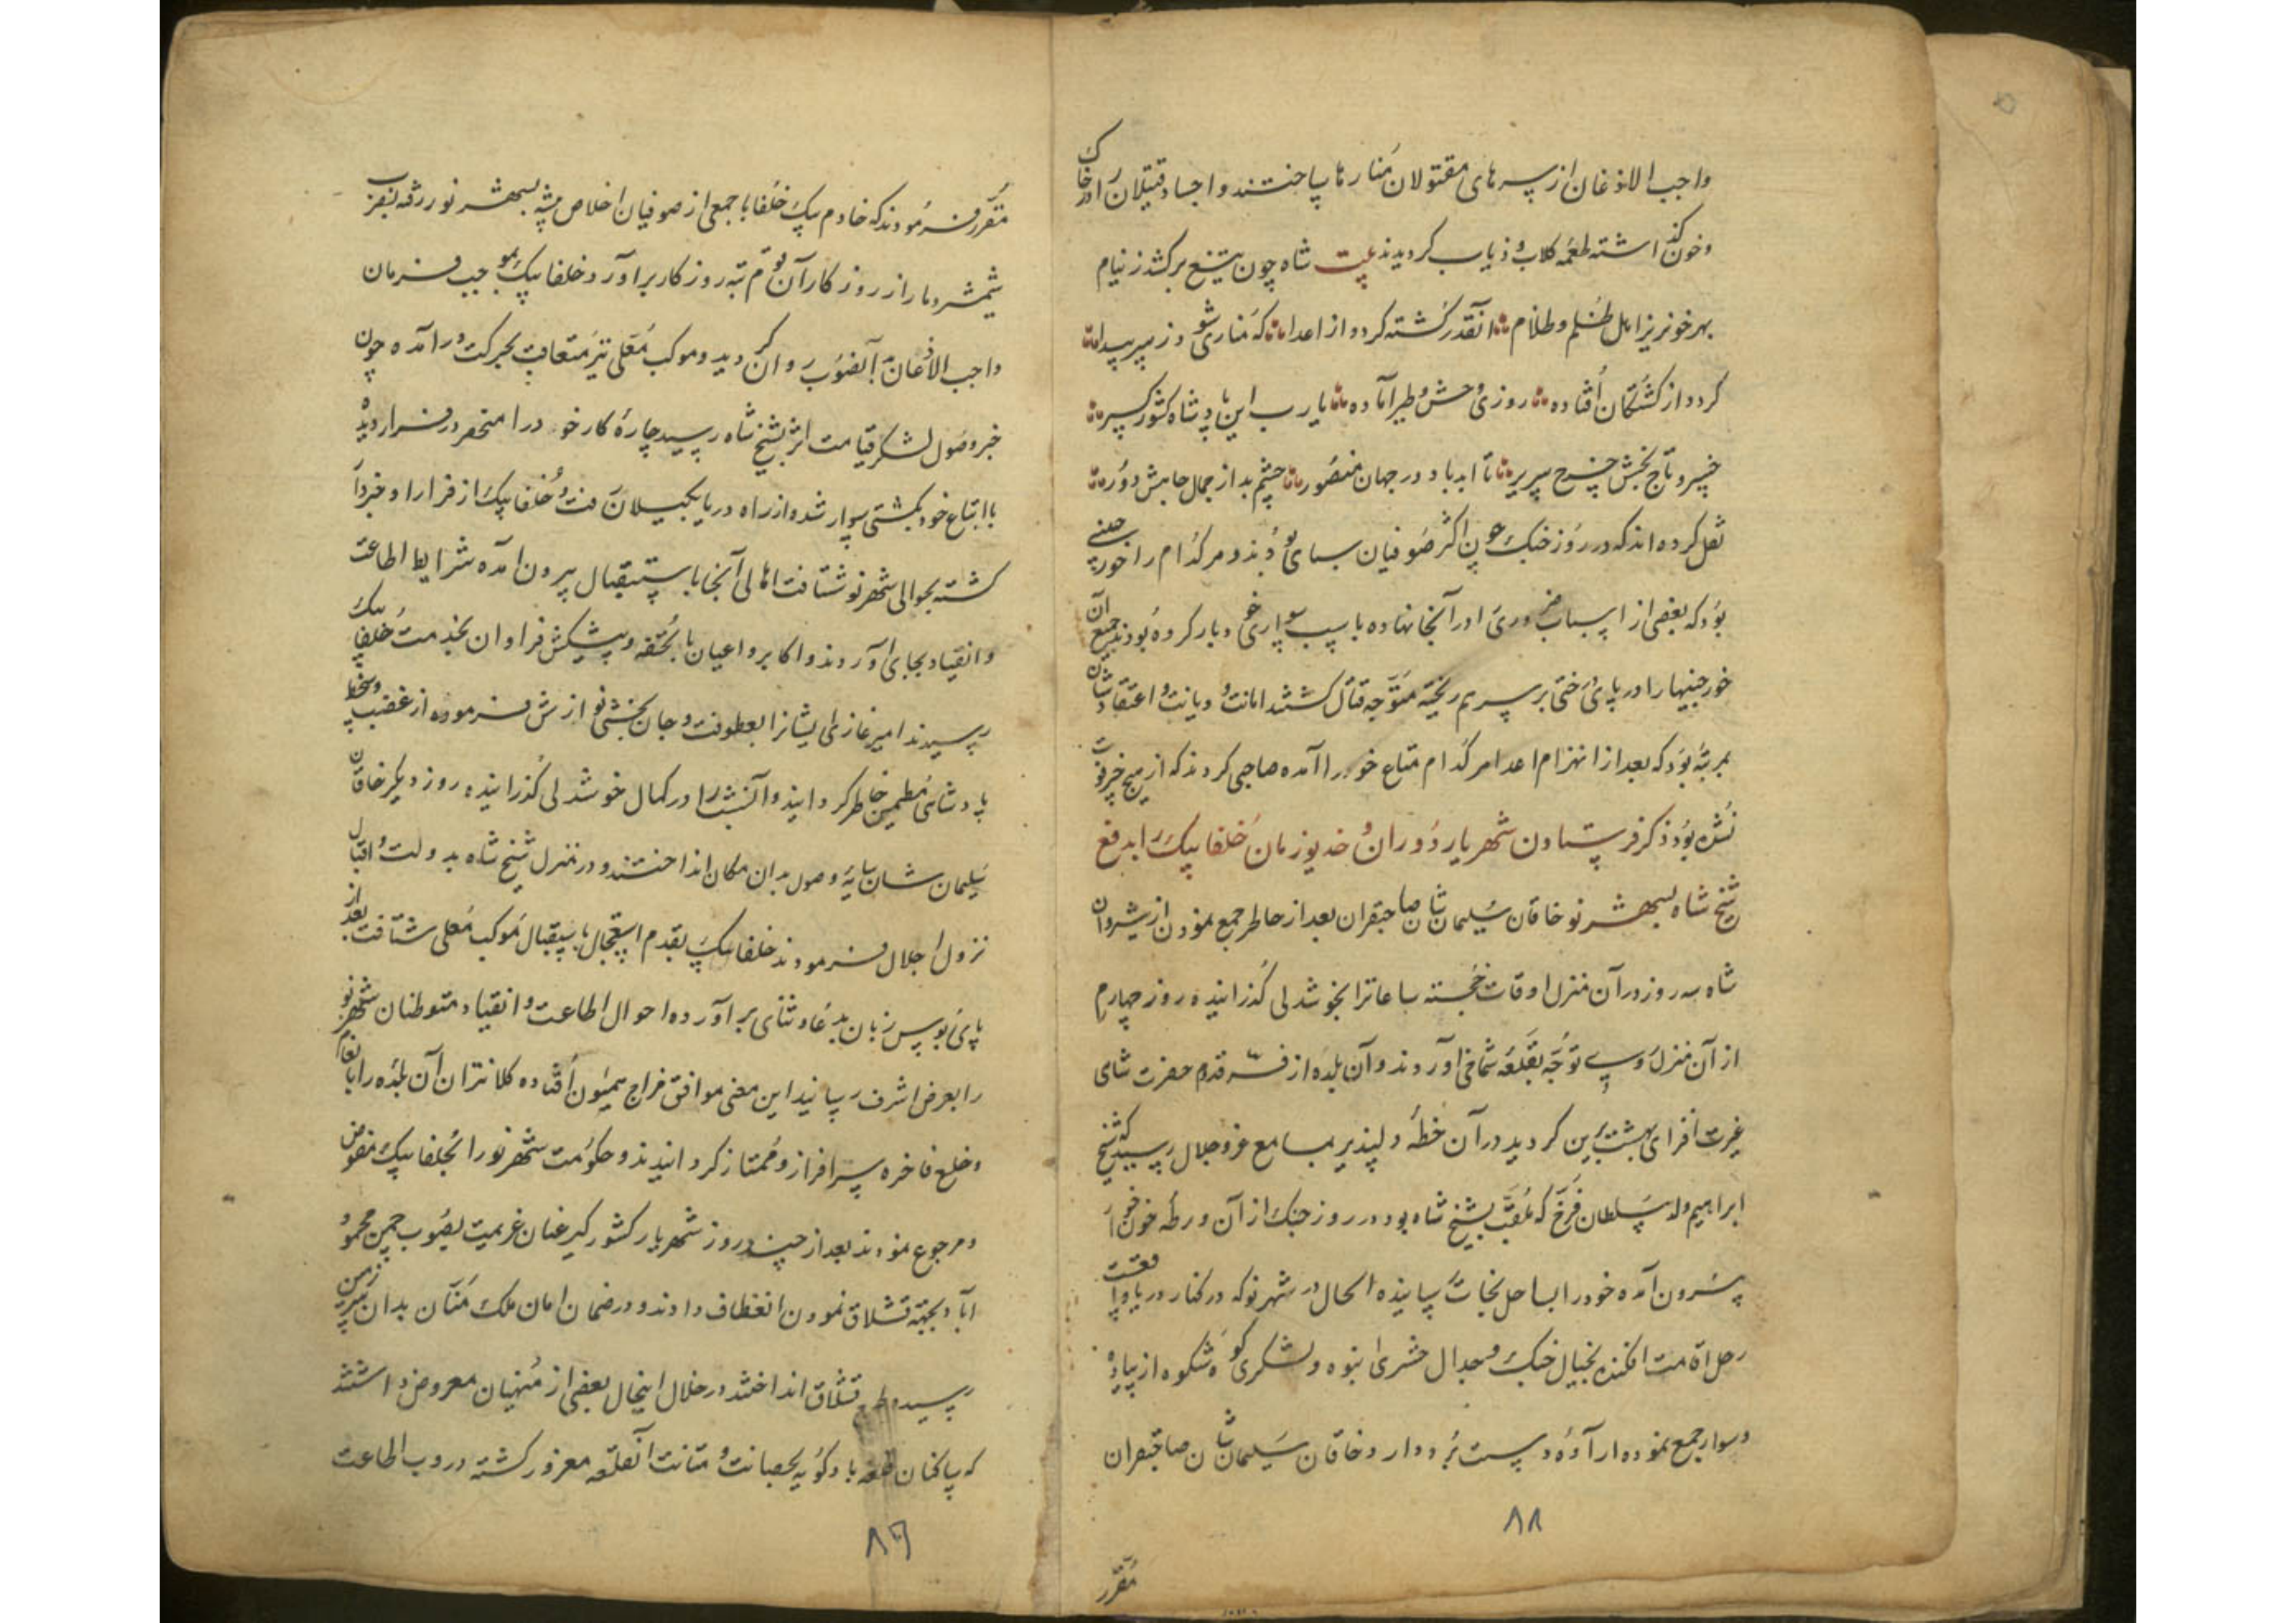 واجب الاذعان از سرهای مقتولان منارها ساختند و اجساد قتیلان را در خاک
و خون گذاشته طعمه کلاب و ذیاب گردیدند بیت شاه چون تیغ برکشد ز نیام
بهر خونریز اهل ظلم و ظلام آنقدر کشته گردد از اعدا که مناری شود ز سر پیدا
گردد از کشتگان افتاده روزی وحش و طیر آماده یا رب این پادشاه کشورگیر
خسرو تاج بخش چرخ سریر تا ابد باد در جهان منصور چشم بد از جمال جاهش دور
نقل کرده اند که در روز جنک چون اکثر صوفیان سپاهی بودند و هر کدام را خورجینی
بود که بعضی از اسباب ضروری را در آنجا نهاده با سپ سواری خود بار کرده بودند جمیع آن
خورجینها را در پای درختی بر سر هم ریخته متوجه قتال کشتند امانت و دیانت و اعتقاد شان
بمرتبه بود که بعد از انهزام اعدا هر کدام متاع خود را آمده صاحبی کردند که از هیچ خیر فوت
نشده بود ذکر فرستادن شهریار دوران و خدیو زمان خلفا بیک را بدفع
شیخ شاه بسمت شهر نو خاقان سلیمان شان صاحبقران بعد از خاطر جمع نمودن از شیروان
شاه سه روز در آن منزل اوقات خجسته ساعات را بخوشدلی گذرانیده روز چهارم
از آن منزل روی توجه بقلعه شماخی آوردند و آن بلده از فر قدم حضرت شاهی
غیرت افزای بهشت برین گردید در آن خطه دلپذیر بمسامع عز و جلال رسید که شیخ
ابراهیم ولد سلطان فرخ که ملقب بشیخ شاه بود در روز جنک از آن ورطه خونخوار
بیرون آمده خود را بساحل نجات رسانیده الحال در شهر نو که در کنار دریا واقعست
رحل اقامت افکنده بخیال جنک و جدال حشری انبوه و لشکری کوه شکوه از پیاده
و سوار جمع نموده اراده دست برد دارد خاقان سلیمان شان صاحبقران
۸۸
مقرر
مقرر فرمودند که خادم بیک خلفا با جمعی از صوفیان اخلاص پیشه بسمت شهر نو رفته بضرب
شمشیر دمار از روزگار آن قوم تبه روزگار برآورد خلفا بیک بموجب فرمان
واجب الاذعان بآنصوب روان گردید و موکب معلی نیز متعاقب بحرکت درآمده چون
خبر وصول لشکر قیامت اثر بشیخ شاه رسید چاره کار خود را منحصر در فرار دیده
با اتباع خود بکشتی سوار شده از راه دریا بکیلان رفت و خلفا بیک از فرار او خبردار
کشته بحوالی شهر نو شتافت اهالی آنجا باستقبال بیرون آمده شرایط اطاعت
و انقیاد بجای آوردند و اکابر و اعیان با تحفه و پیشکش فراوان بخدمت خلفا بیک
رسیدند امیر غازی ایشانرا بعطوفت و جان بخشی نوازش فرموده از غضب و سخط
پادشاهی مطمین خاطر گردانید و آنشب را در کمال خوشدلی گذرانیده روز دیگر خاقان
سلیمان شان سایه وصول بدان مکان انداختند و در منزل شیخ شاه بدولت و اقبال
نزول اجلال فرمودند خلفا بیک بقدم استعجال باستقبال موکب معلی شتافت بعد از
پای بوس زبان بدعا و ثنای برآورده احوال اطاعت و انقیاد متوطنان شهر نو
را بعرض اشرف رسانید این معنی موافق مزاج همیون افتاده کلانتران آن بلده را بانعام
و خلع فاخره سرافراز و ممتاز گردانیدند و حکومت شهر نو را بخلفا بیک مفوض
و مرجوع نمودند بعد از چند روز شهریار کشورگیر عنان عزیمت بصوب چمن محمود
آباد بجهته قشلاق نمودن انعطاف دادند و در ضمان امان ملک منان بدان سرزمین
رسیده طرح قشلاق انداختند در خلال اینحال بعضی از منهیان معروض داشتند
که ساکنان قلعه باد کوبه بحصانت و متانت آنقلعه مغرور کشته در وب اطاعت
۸۹